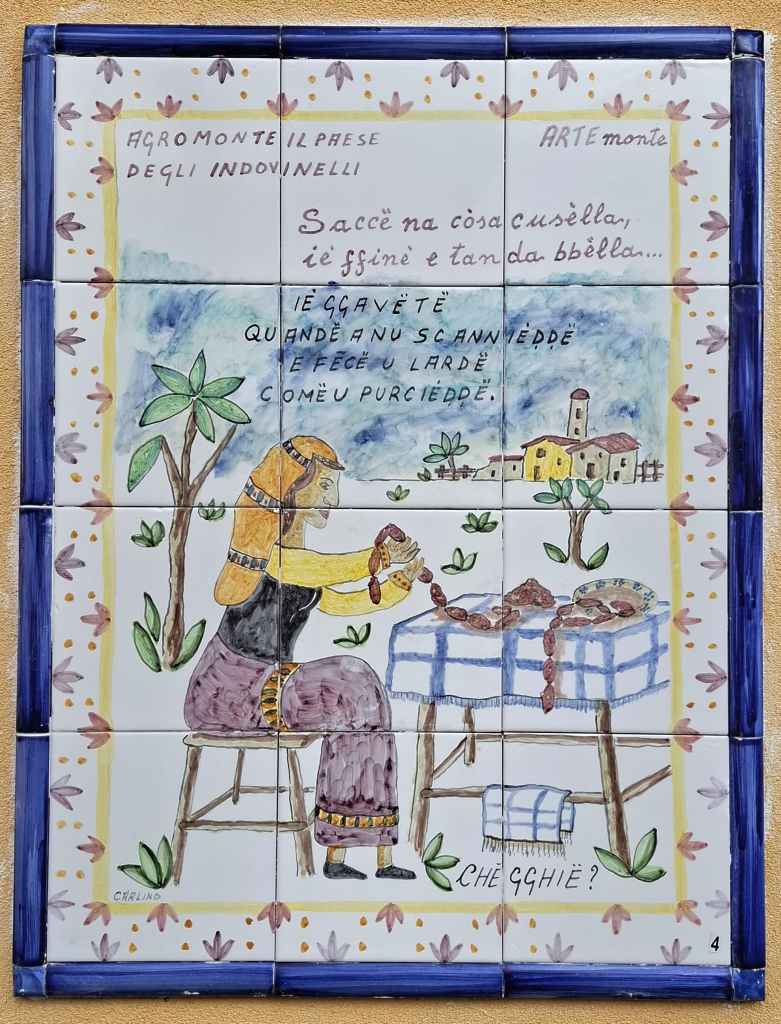 AGROMONTE IL PAESE
DEGLI INDOVINELLI
ARTE monte
Saccë na còsa cusèlla,
ié ffinë e tan da bbèlla...
IÈ GGAVËTË
QUANDË A NU SCANNIÈḌḌË
E FÉCË U LARDË
COMË U PURCIÉḌḌË.
CHÈ GGHIË?
CARLINO
4